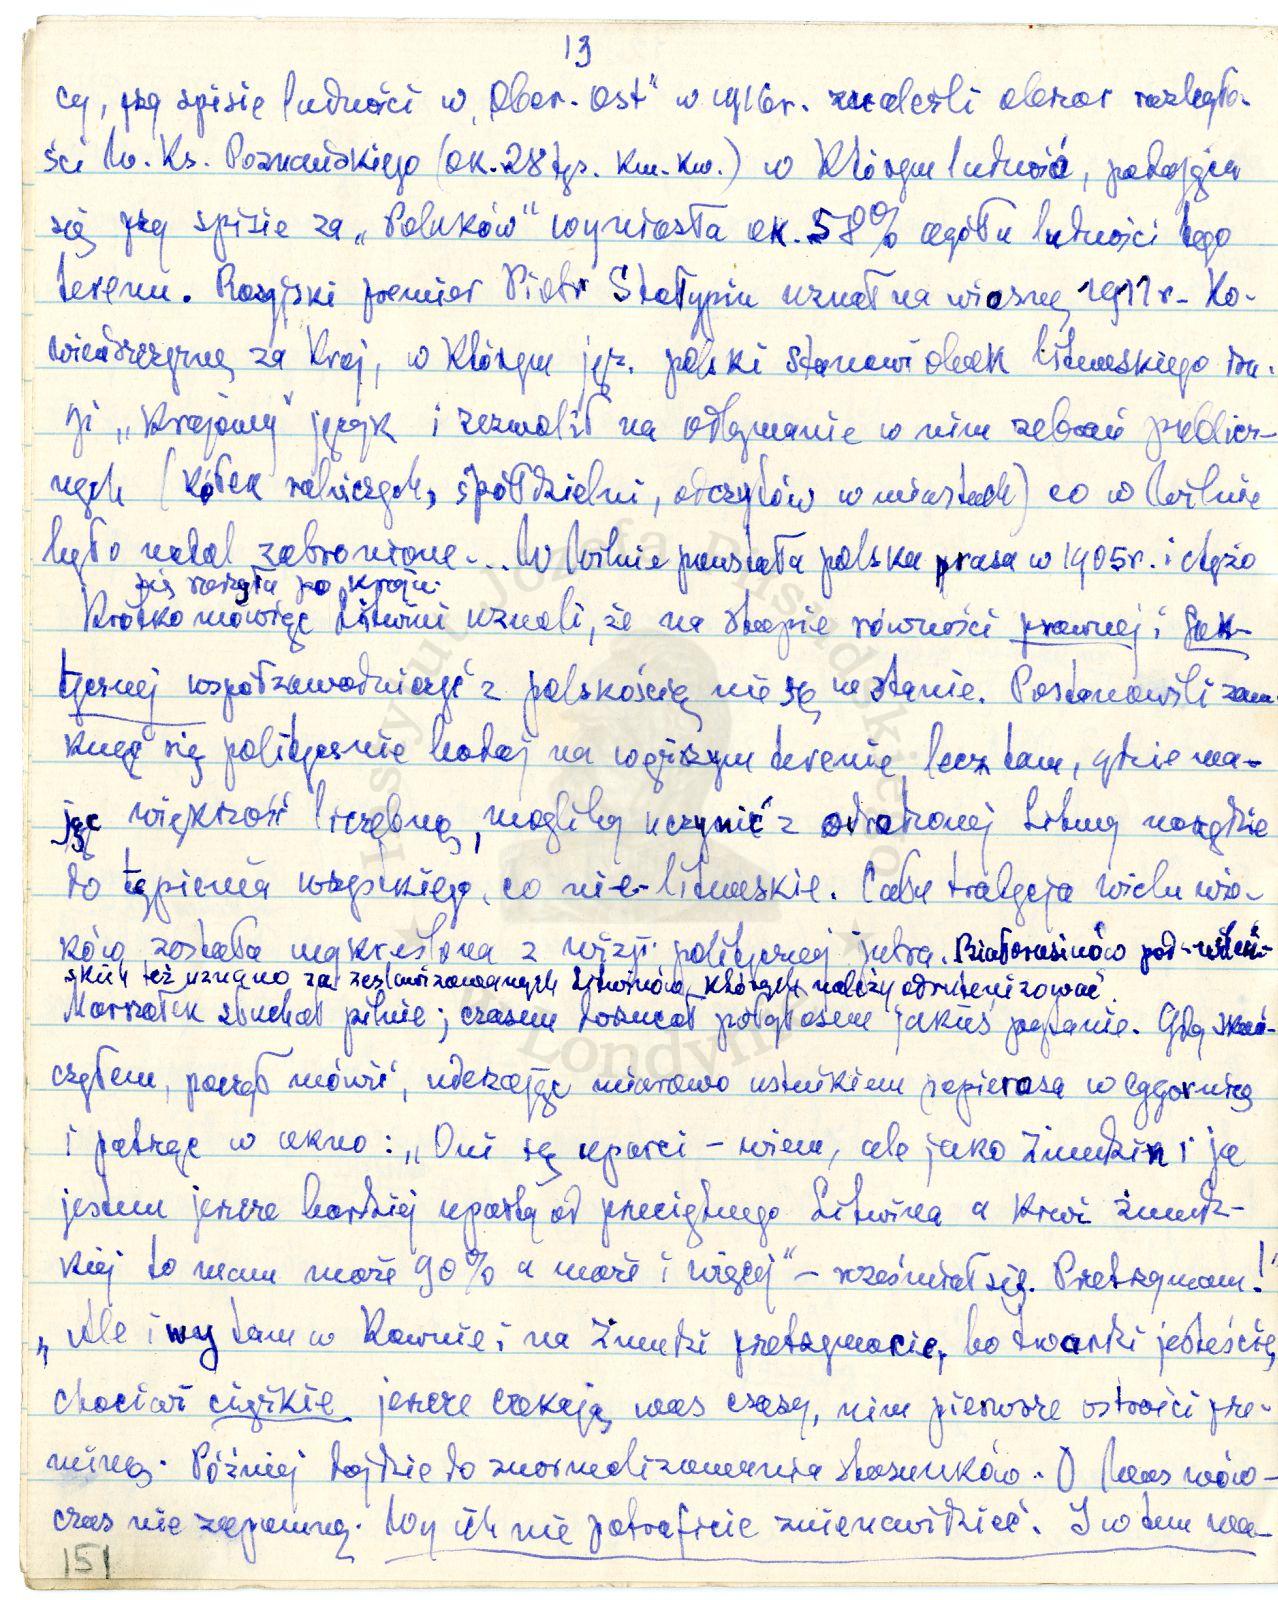 13
cy, przy spisie ludności w „Ober. Ost" w 1916 r. znaleźli obszar rozległo-
ści W. Ks. Poznańskiego (ok. 28 tys. km. kw.) w którym ludność, podająca
się przy spisie za „Polaków" wyniosła ok. 58% ogółu ludności tego
terenu. Rosyjski premier Piotr Stołypin uznał na wiosnę 1911 r. Ko-
wieńszczyznę za kraj, w którym jęz. polski stanowi obok litewskiego dru-
gi „krajowy" język i zezwolił na odbywanie w nim zebrań publicz-
nych (kółek rolniczych, spółdzielni, odczytów w miastach) co w Wilnie
było nadal zabronione... W Wilnie powstała polska prasa w 1905 r. i
się po kraju.
Krótko mówiąc Litwini uznali, że na stopie równości prawnej i fak-
tycznej współzawodniczyć z polskością nie są w stanie. Postanowili zam-
knąć się politycznie bodaj na węższym terenie, lecz tam, gdzie ma-
jąc większość liczebną, mogliby uczynić z odrodzonej Litwy narzędzie
do tępienia wszystkiego, co nie-litewskie. Cała tradycja wielu wie-
ków została wykreślona z wizji politycznej jutra. Białorusinów pod-wileń-
skich też uznano za zeslawizowanych Litwinów, których należy odrutenizować.
Marszałek słuchał pilnie; czasem dorzucał półgłosem jakieś pytanie. Gdy skoń-
czyłem, począł mówić, uderzając miarowo ustnikiem papierosa w cygarnicę
i patrząc w okno: „Oni są uparci – wiem, ale jako Żmudzin i ja
jestem jeszcze bardziej uparty od przeciętnego Litwina a krwi żmudz-
kiej to mam może 90% a może i więcej" – roześmiał się. Przetrzymam!"
„Ale i wy tam w Kownie i na Żmudzi przetrzymacie, bo twardzi jesteście,
chociaż ciężkie jeszcze czekają was czasy, nim pierwsze ostrości prze-
miną. Później dojdzie do znormalizowania stosunków. O Was wów-
czas nie zapomnę. Wy ich nie potraficie znienawidzieć. I w tem wa-
151
Instytut Józefa Piłsudskiego
w Londynie